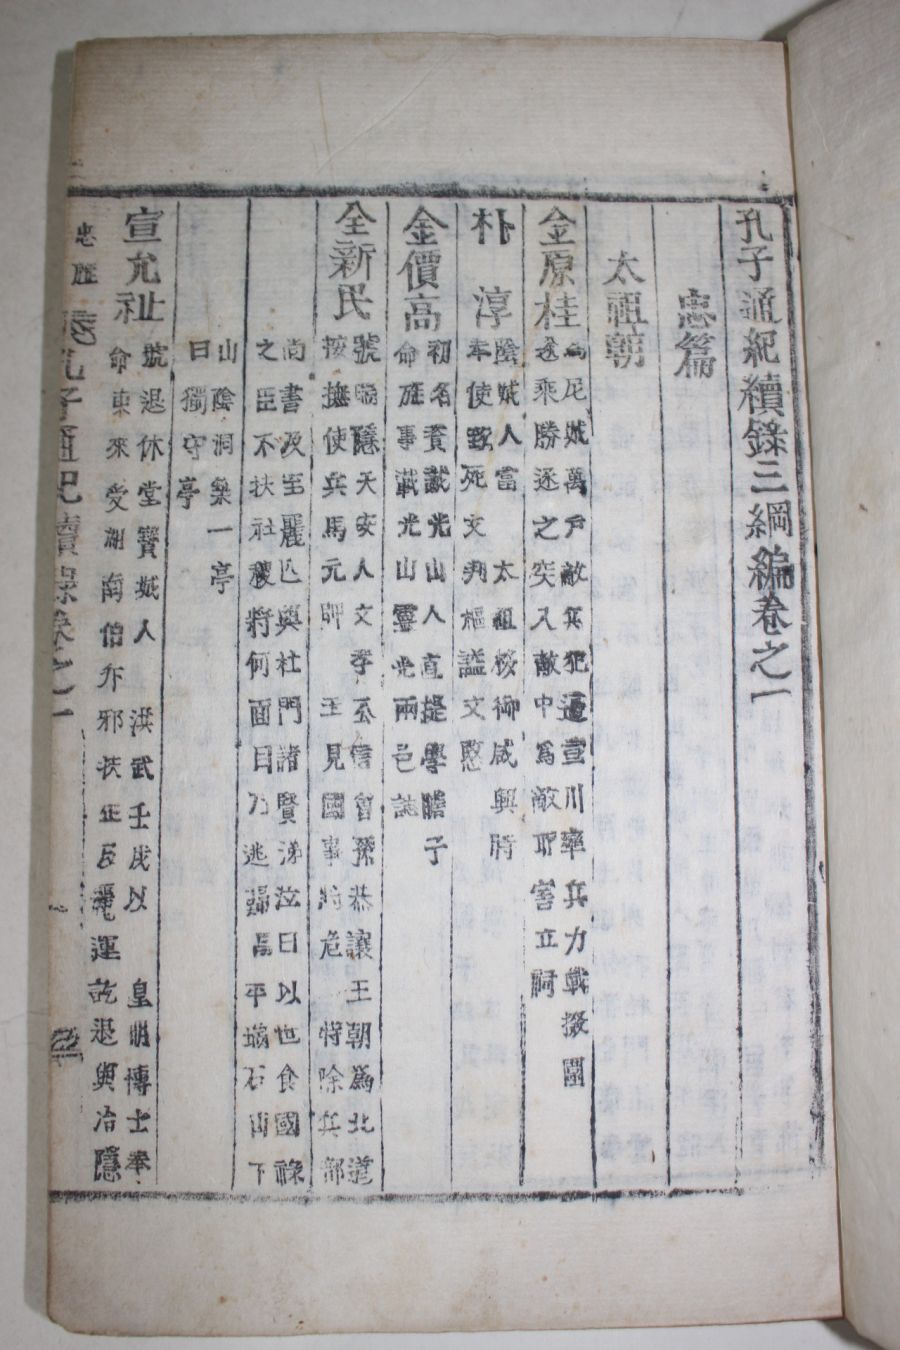 孔子通紀續錄三綱編卷之一
忠篇
太祖朝
金原桂
爲尼城萬戶敵兵犯邊宣川率兵力戰撥圍
遂乘勝逐之突入敵中爲敵所害立祠
朴淳
陰城人當 太祖移御咸興時
奉使致死文判樞謚文愍
金價高
初名貴載光山人直提學瞻子
命旌事載光山靈光兩邑誌
全新民
號 隱天安人文孝公信曾孫恭讓王朝爲北道
按撫使兵馬元帥 王見國事將危特除兵部
尚書及至麗亡與杜門諸賢涕泣曰以世食國祿
之臣不扶社稷將何面目乃逃歸昌平瑞石山下
山陰洞築一亭
曰獨守亭
宣允祉
號退休堂寶城人 洪武壬戌以 皇明博士奉
命東來受湖南伯斥邪扶正及麗運訖退與冶隱
忠臣
孔子通紀續錄卷之一